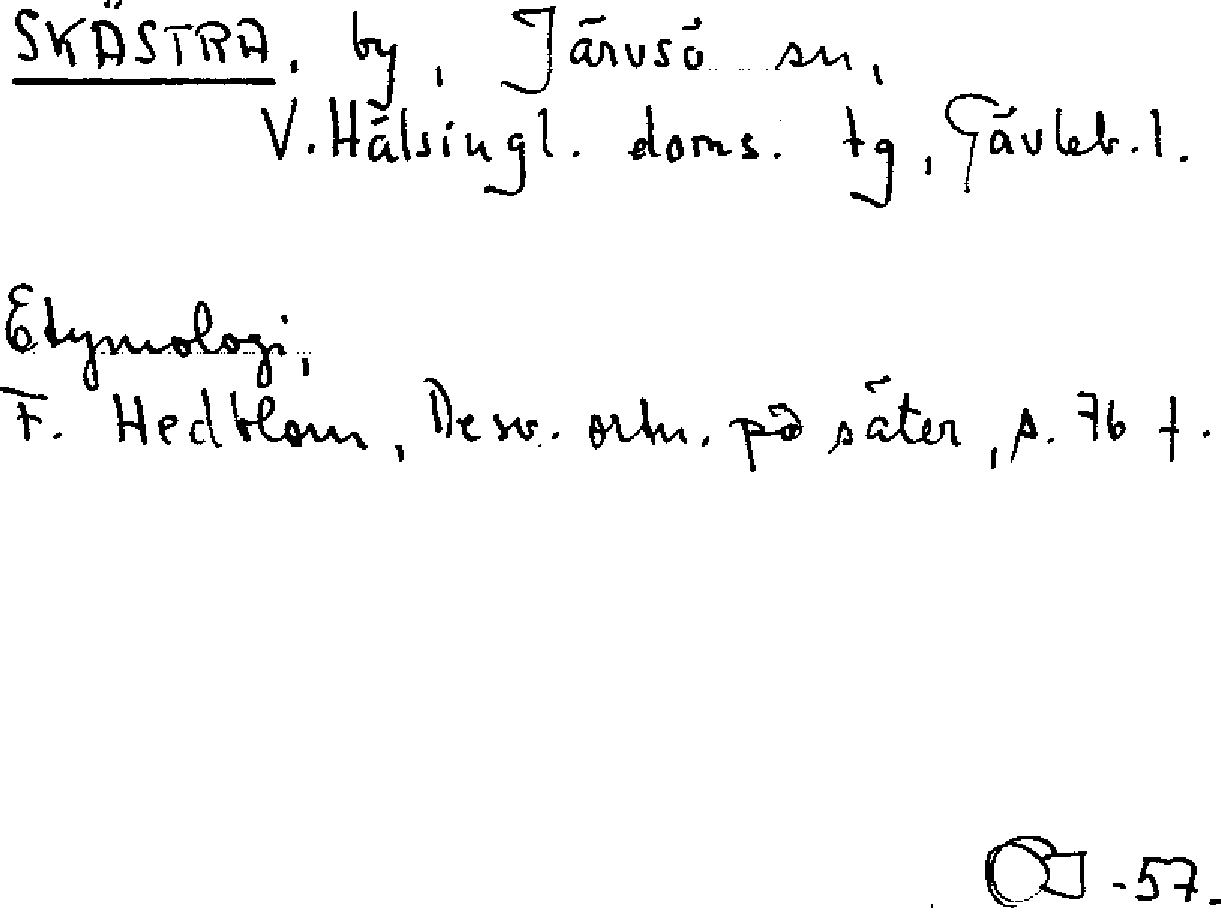 SKÄSTRA, by, Järvsö sn,
V. Hälsingl. doms. tg, Gävleb. l.
Etymologi,
F. Hedblom, De sv. ortn. på säter, s. 76 f.
-57.